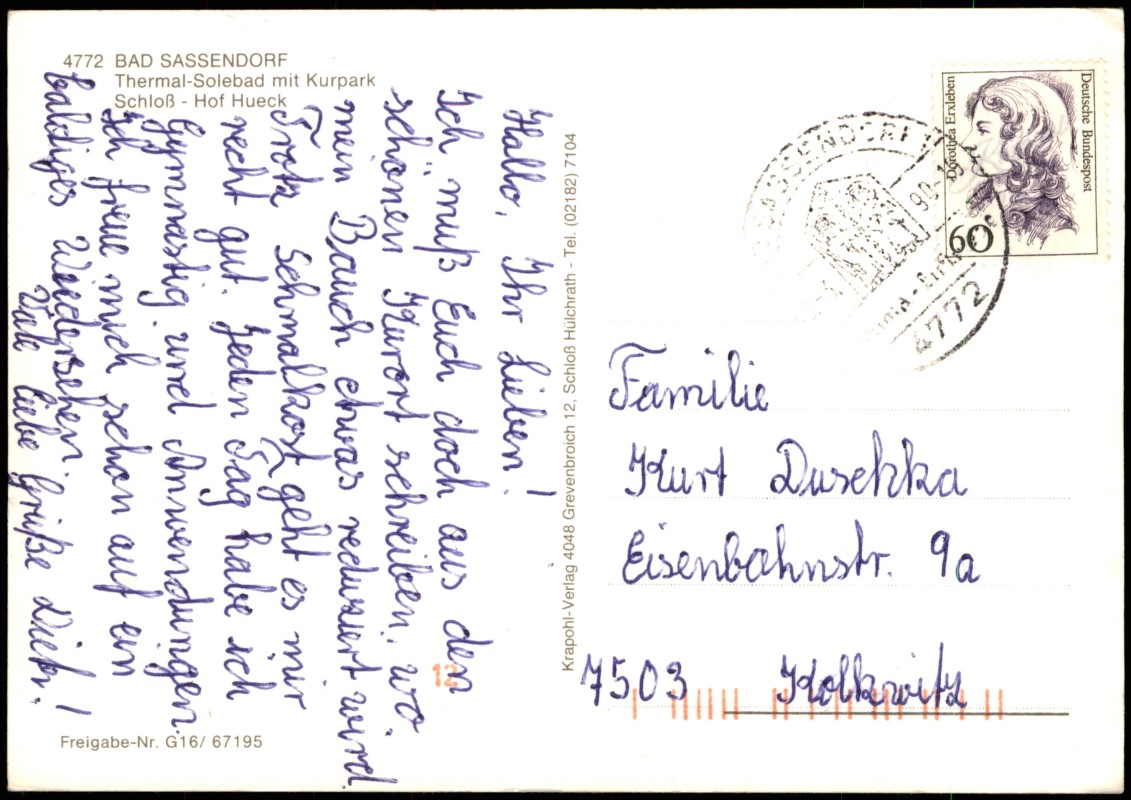 4772 BAD SASSENDORF
Thermal-Solebad mit Kurpark
Schloß - Hof Hueck
Hallo, Ihr Lieben!
Ich muß Euch doch aus den
schönen Kurort schreiben, wo
mein Bauch etwas reduziert wird.
Trotz Schmalkost geht es mir
recht gut. Jeden Tag habe ich
Gymnastig und Anwendungen.
Ich freue mich schon auf ein
baldiges Wiedersehen.
Viele liebe Grüße
Freigabe-Nr. G16/ 67195
Krapohl-Verlag 4048 Grevenbroich 12, Schloß Hülchrath - Tel. (02182) 7104
Deutsche Bundespost
Dorothea Erxleben
60
SASSENDORF
90-1
4772
Familie
Kurt Duschka
Eisenbahnstr. 9a
7503 Kolkwitz
12